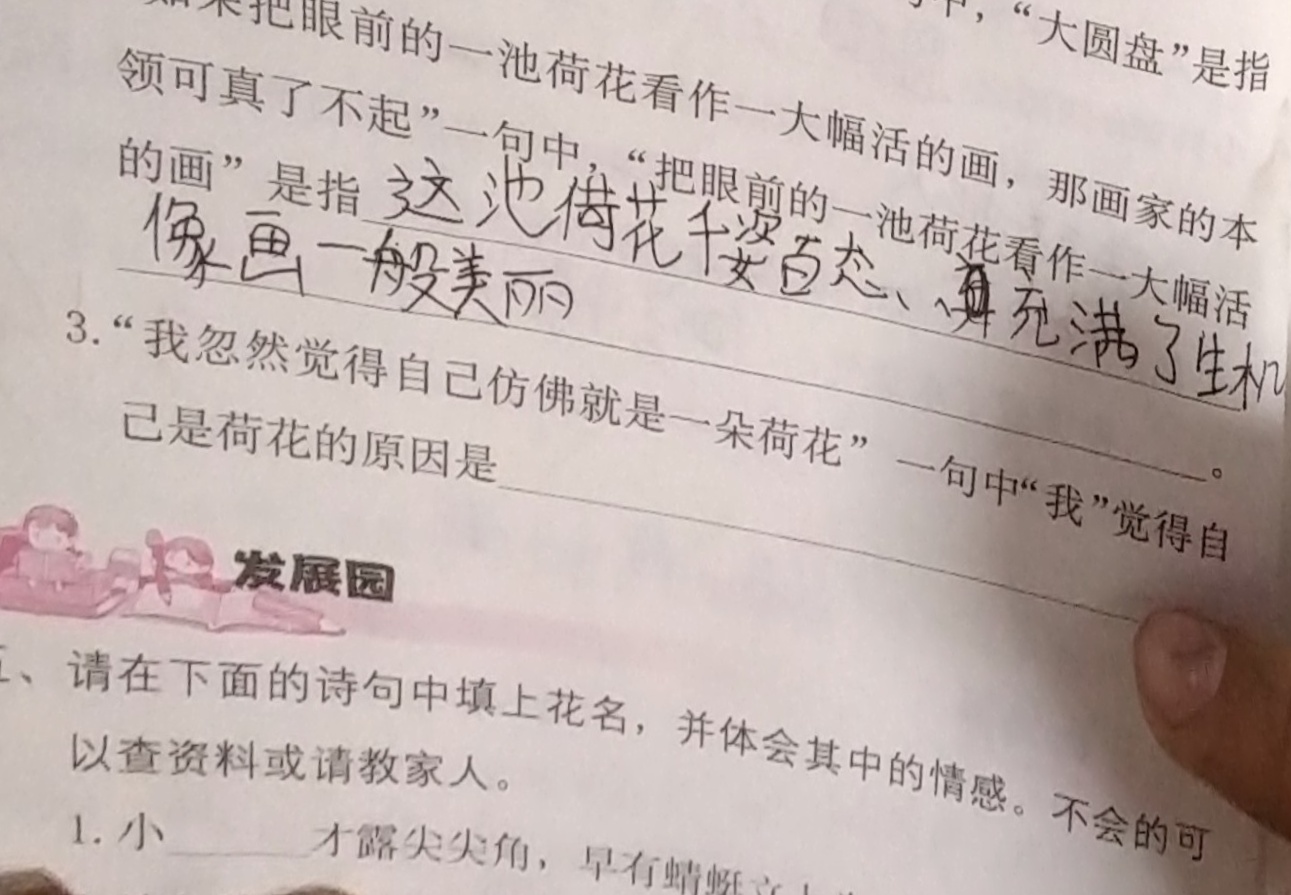 中，“大圆盘”是指
如果把眼前的一池荷花看作一大幅活的画，那画家的本
领可真了不起”一句中，“把眼前的一池荷花看作一大幅活
的画”是指这池荷花千姿百态、充满了生机
像画一般美丽。
3.“我忽然觉得自己仿佛就是一朵荷花”一句中“我”觉得自
己是荷花的原因是
发展园
、请在下面的诗句中填上花名，并体会其中的情感。不会的可
以查资料或请教家人。
1. 小____才露尖尖角，早有蜻蜓立上